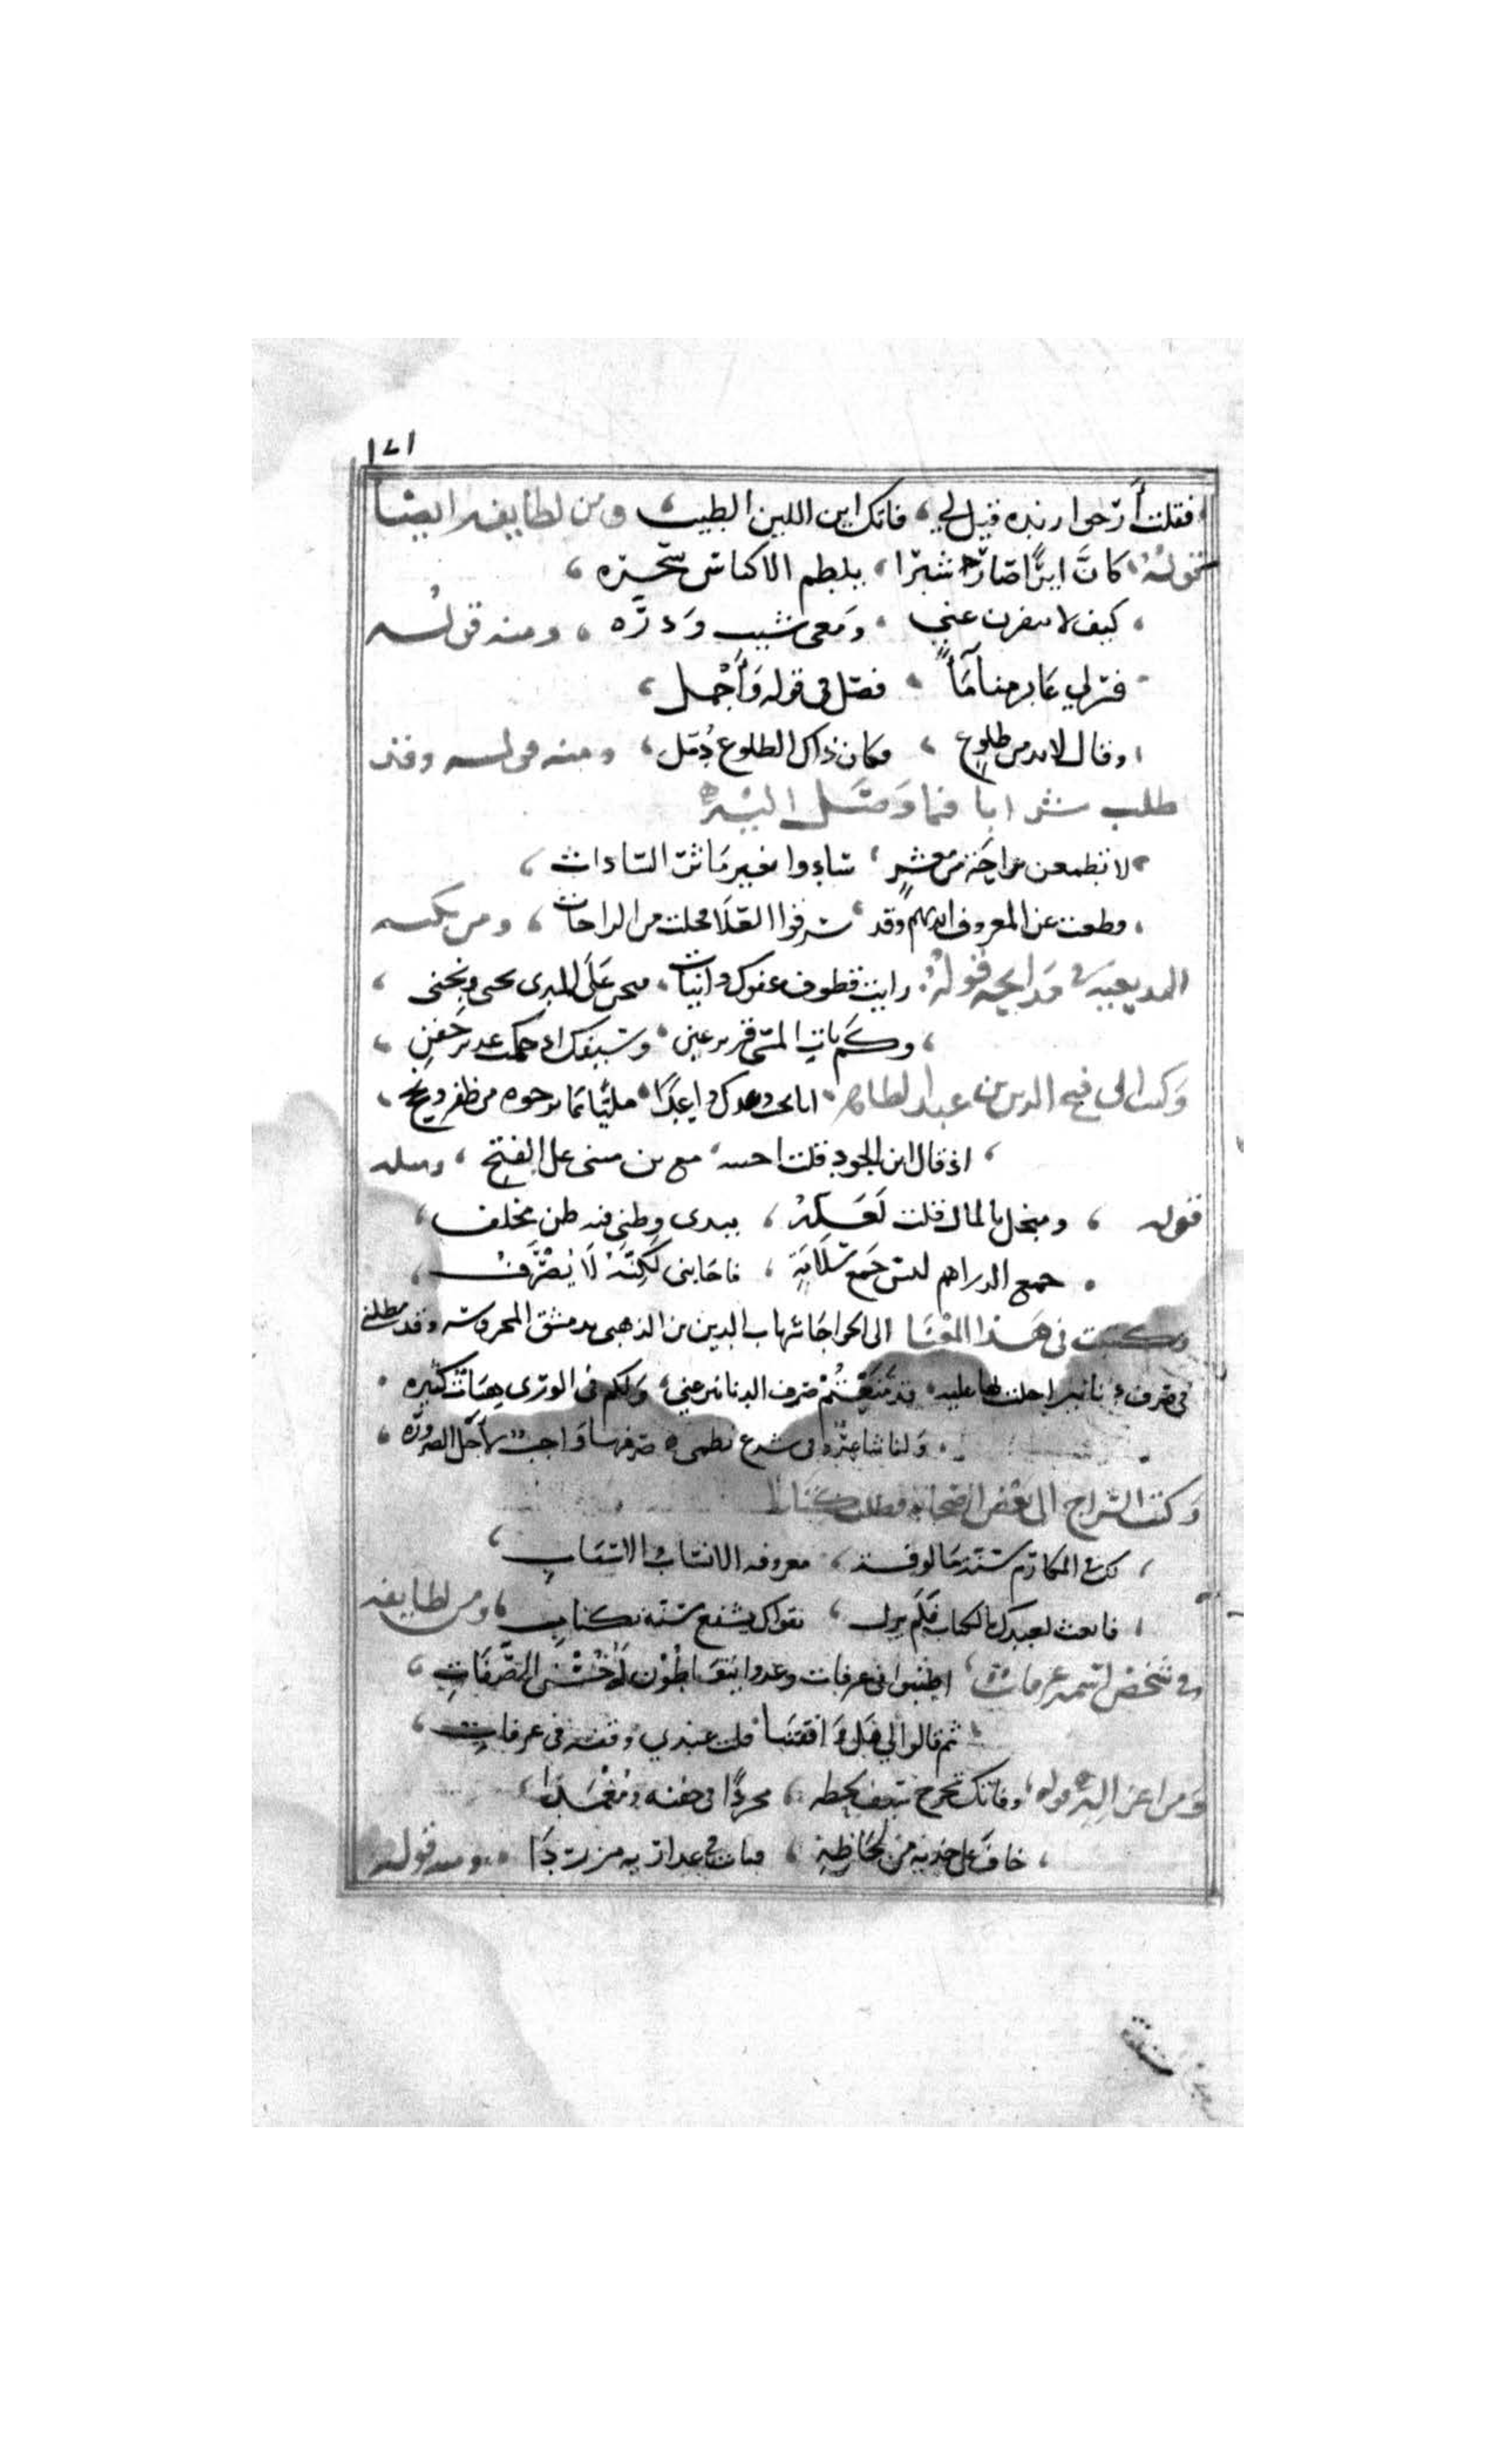 ١٧١
فقلت أرتجى ارنده قيل لي ، فاتك اين اللبن الطيب ومن لطايفه ايضا
قوله كان ايرا صار شبرا ، بلطم الاكساس سحره ،
، كيف لا ينفرن عني ، ومعى شيب ودره ، ومنه قوله
فسر لي عابر مناما ، فصل فى قوله واجمل ،
، وقال لا بد من طلوع ، فكان ذاك الطلوع دمل ، ومنه قوله وقد
طلب شرابا فما وصل اليه
لا تطمعن براحة من معشر ، سادوا بغير ماثر السادات ،
، قطعت عن المعروف ايديهم وقد ، سرقوا العلا فخلت من الراحات ، ومن نكته
البديعية فى مدايحه قوله رايت قطوف عفوك دانيات ، فنحن على المدى نحيى ونجنى ،
، وكم بات المسى قرير عين ، وسيفك اذ حكمت عدير جفن ،
وكتب الى فتح الدين بن عبد الظاهر ،
، اذ قال ابن الجود قلت احسه على الفتح ،
قوله ، ومبخل بالمال قلت لعله ، يندى وظنى فيه ظن مخلف ،
، جمع الدراهم ليس جمع سلامة ، فاجابنى لكنه لا يصرف ،
وكتبت فى هذا المعنا الى الخواجا شهاب الدين بن الذهبى بدمشق المحروسه وقد مطلنى
فى صرف دنانير احلت بها عليه ، قد منعتم صرف الدنانير عني ، ولكم فى الورى هبات كثيره ،
، ولنا شاعر فى شرع نظمى ، صرفها واجب لاجل الضروره ،
وكتب السراج الى بعض اصحابه وطلب كتابا
، لك فى المكارم سنة مالوفة ، معروفه الانساب الاسباب ،
، فابعث لعبدك بالكتاب فلم يزل ، نقواك يشفع سنة بكتاب ، ومن لطايفه
فى شخص اسمه عرفات ، اطنبوا فى عرفات وغدوا يتعاطون له حسن الصفات ،
ثم قالوا لي هل وافقتنا قلت عندي وقفة فى عرفات ،
ومن اغراليه قوله ، وفاتك تجرح سيف لحظه ، مجردا فى جفنه ومغمدا ،
، خاف على خديه من لحاظه ، فبات فى عذاره مزردا ، ومنه قوله